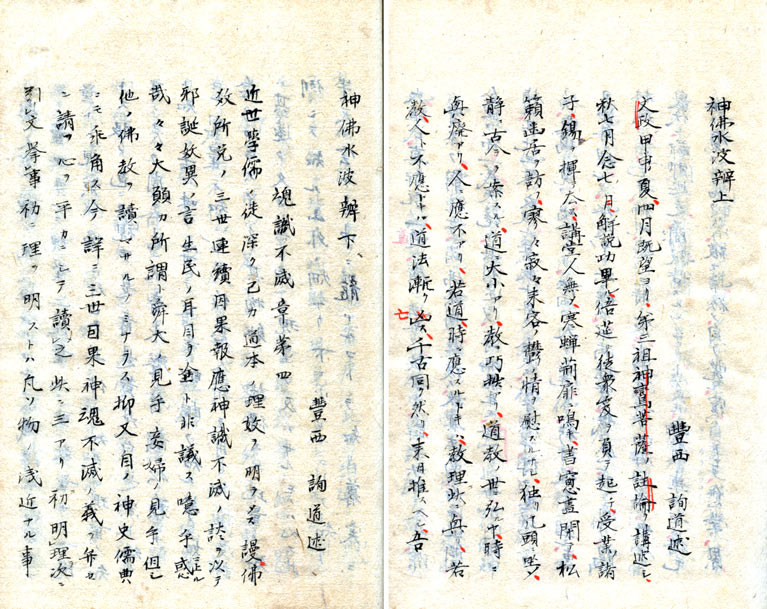 神佛水波辯上
豐西 詢道述
文政甲申夏四月既望ヨリ第三祖神鸞菩薩ノ註論ヲ講述シ
秋七月念七ノ日解説功畢ル倍莚ノ徒衆笈ヲ負テ起チ受業諸
子錫ヲ揮テ去ル講堂人無ク寒蟬荊扉ニ鳴キ書窓晝閑ニ松
籟幽居ヲ訪フ寥々寂々未客ノ鬱情ヲ慰スルナ独リ几頭ニ坐
静ニ古今ヲ案スルニ道大小アリ教巧拙アリ道教ノ世弘ルヤ時ニ
興廢アリ人應不アリ若道時ニ應スルトキハ教理共ニ興リ若
教人ト不應トキハ道法漸ク凶ス千古同ク然リ来日推スヘシ吾
七
神佛水波辯下
豐西 詢道述
魂識不滅章第四
近世學儒ノ徒深ク己カ道本ノ理致ヲ明ラメス謾ニ佛
教所光ノ三世連續因果報應神識不滅ノ談ヲ以テ
邪誕妖異ノ言生民ノ耳目ヲ塗ト非議ス噫乎惑ル
哉々々大顛カ所謂ル舜犬ノ見乎妾婦ノ見乎但シ
他ノ佛教ヲ讀マサルノミナラス抑又自ノ神史儒典
ニモ乖角ス今詳ニ三世因果神魂不滅ノ義ヲ弁セ
ン請フ心ヲ平カニシテ讀之此ニ三アリ初明理次ニ
引文擧事初ニ理ヲ明ストハ凡ソ物ノ浅近ナル事